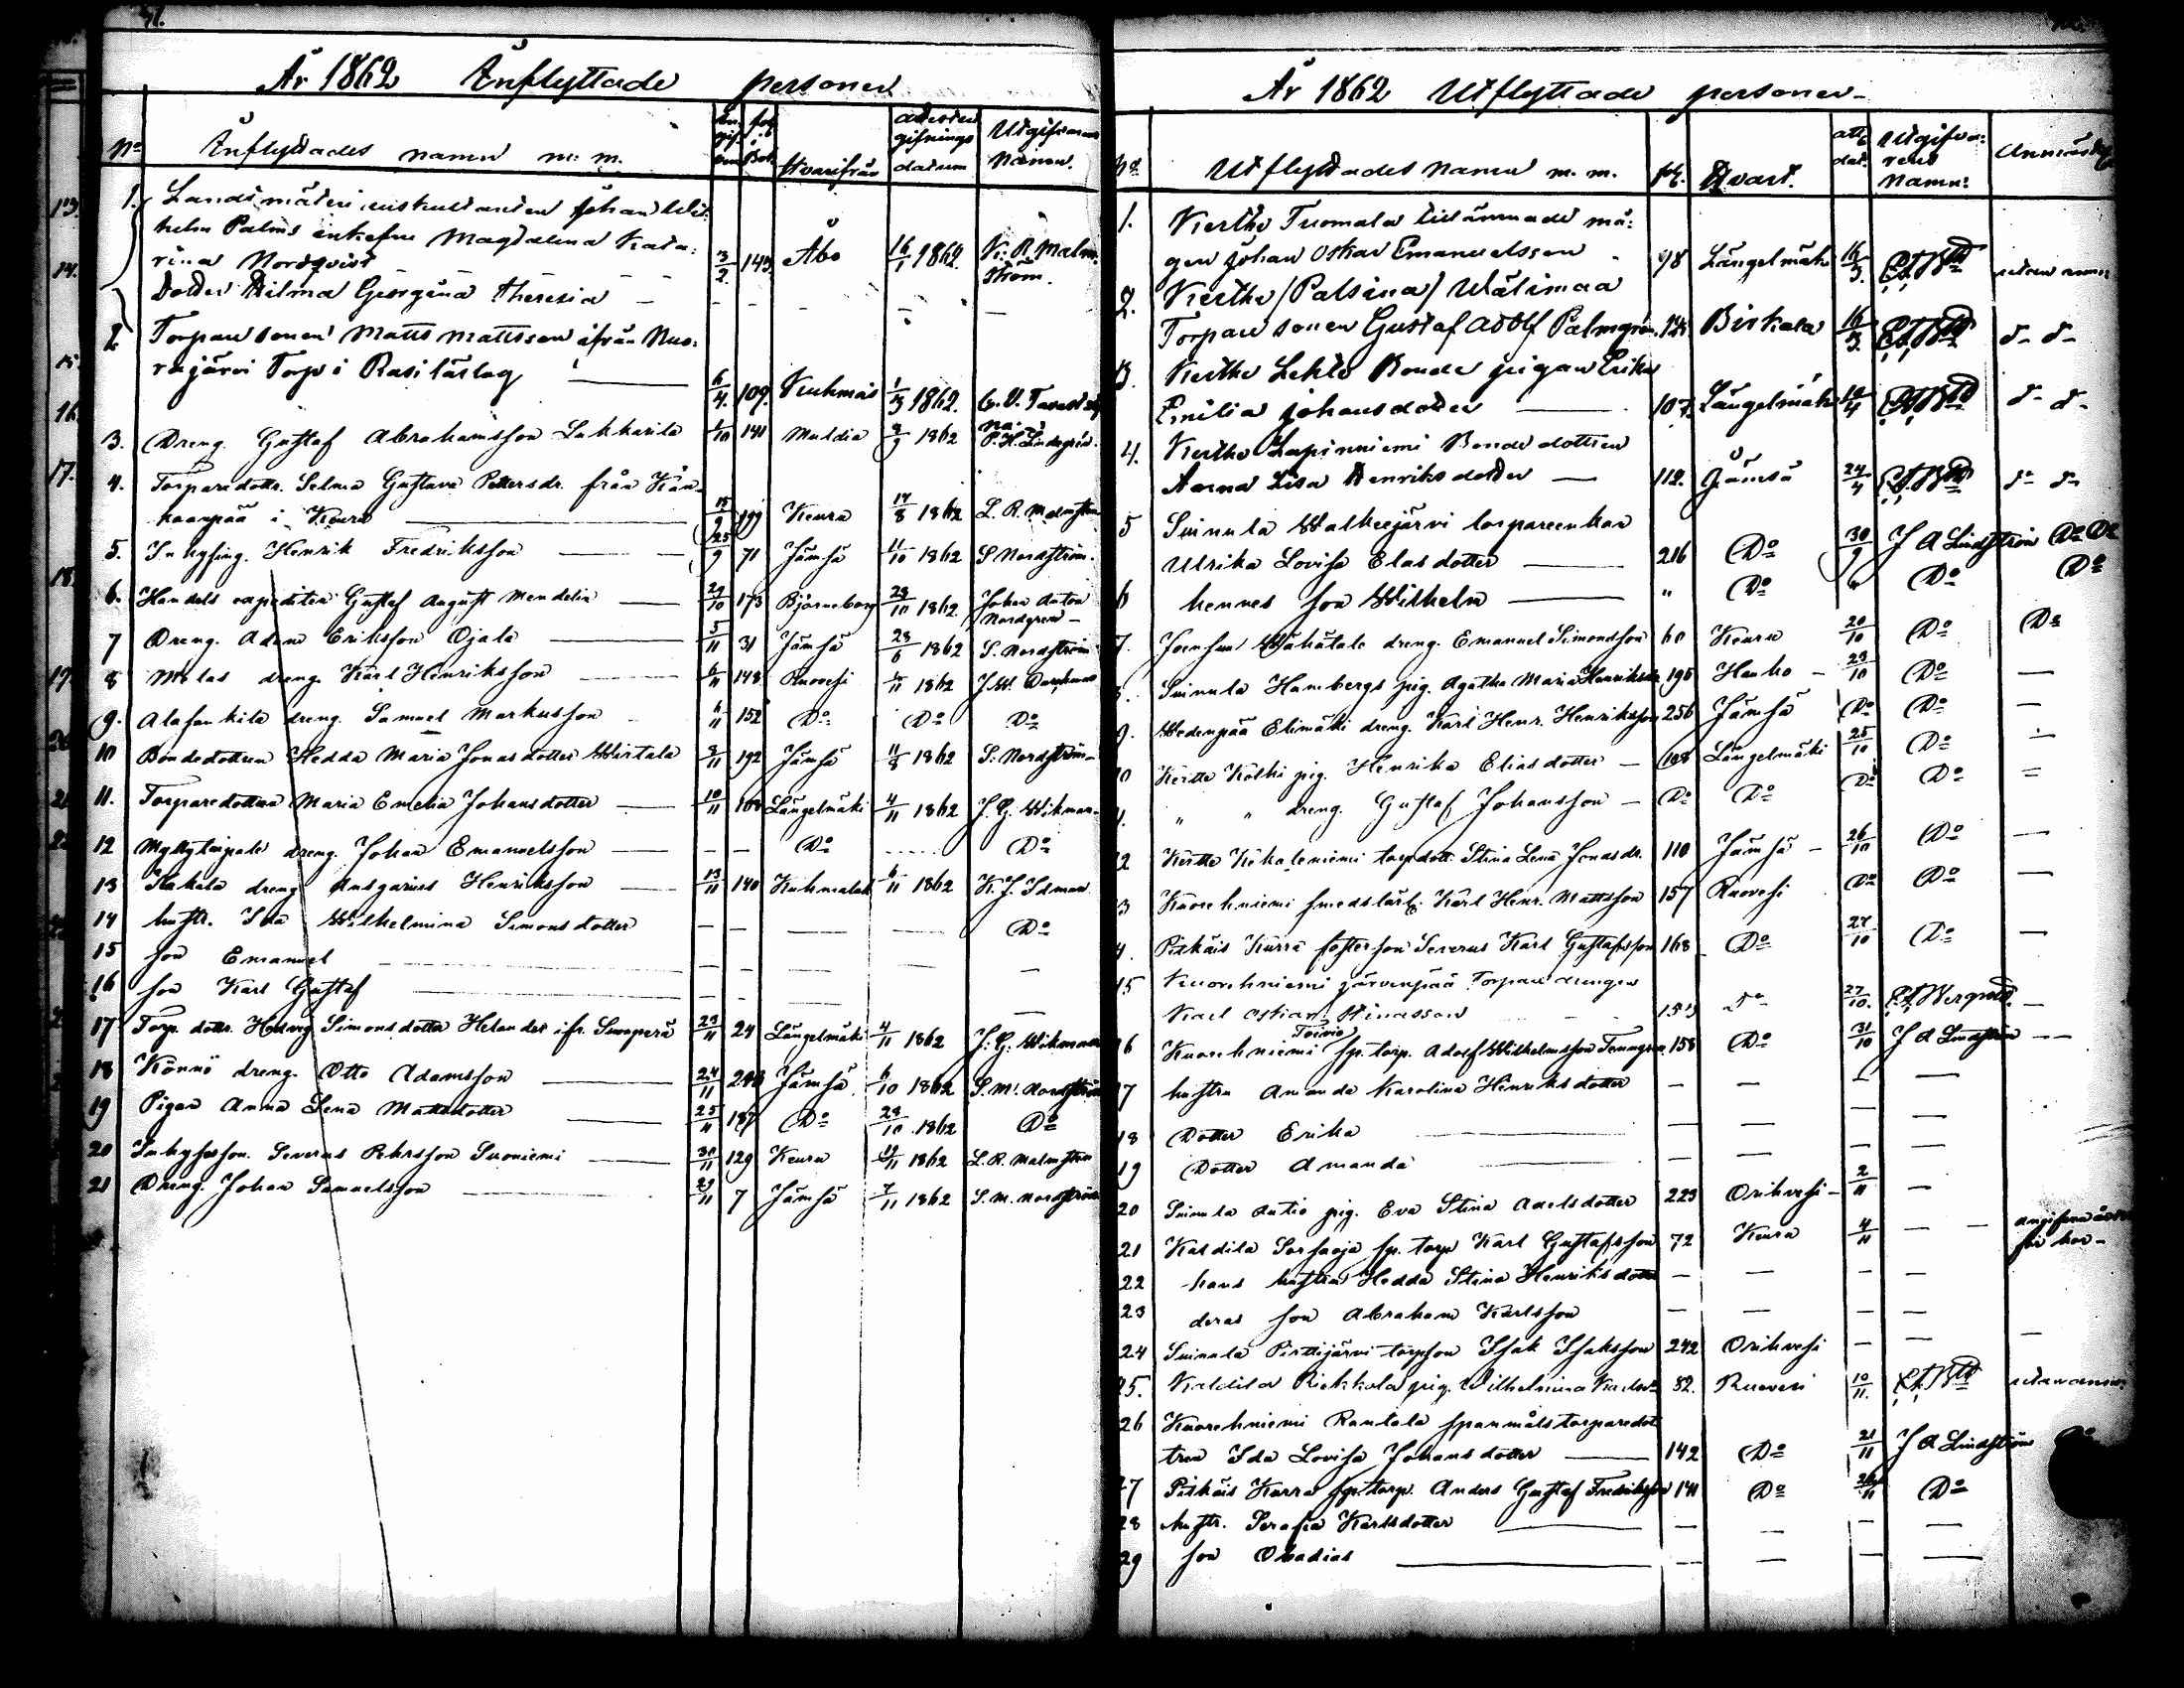 År 1862 Inflyttade personer
No Inflyttades namn m. m. Hvarifrån attestens gifnings datum Utgifvarens Namn.
1. Landtmäteri auskultanten Johan Wil-
helm Palms enkefru Magdalena Kata-
rina Nordqvist 3/2 143 Åbo 16/1 1862. K. R. Malm-
ström.
Dotter Hilma Georgina Theresia — - - - - -
2 Torpare sonen Matts Mattsson ifrån Muo-
rajärvi Torp i Rasilärlag — 6/4. 109. Kuhmois 1/3 1862. G. V. Tavast
3. Dreng. Gustaf Abrahamsson Lukkarila 1/10 141 Muldia 2/9 1862 P. H. Lindegrén.
4. Torparedottr. Selma Gustava Pettersdr. från Kän-
kaanpää i Keuru — 15/9 199 Keuru 14/8 1862 L. R. Malmström
5. Inhysing. Henrik Fredriksson — 25/9 71 Jämsä 11/10 1862 S Nordström.
6. Handels expediten Gustaf August Mendelin — 29/10 173 Björneborg 28/10 1862 Johan Anton
Nordgren -
7 Dreng. Adam Eriksson Ojala — 5/11 31 Jämsä 28/6 1862 S. Nordström
8 Melas dreng Karl Henriksson — 6/11 148 Ruovesi 4/11 1862 J. W. Durchman
9. Alasenkila dreng. Samuel Markusson 6/11 152 Do Do Do
10 Bondedottren Hedda Maria Jonasdotter Wirtala 9/11 192 Jämsä 11/8 1862 S. Nordström
11. Torparedottren Maria Emelia Johansdotter — 10/11 108 Längelmäki 4/11 1862 J. G. Wikman
12 Myllytorpale dreng. Johan Emanuelsson — — — Do ..... Do
13 Kakela dreng Ansgarius Henriksson — 13/11 140 Kuhmalak 6/11 1862 K. J. Idman
14 hustr. Ida Wilhelmina Simonsdotter — — — — Do
15 son Emanuel — — — — — —
16 son Karl Gustaf — — — — —
17 Torp. dottr. Hedvig Simonsdotter Helander ifr. Sunperä 23/11 24 Längelmäki 4/11 1862 J. G. Wikman
18 Könnö dreng. Otto Adamsson — 24/11 Jämsä 6/10 1862 S. M. Nordström
19 Pigan Anna Lena Mattsdotter — 25/11 187 Do 28/10 1862 Do
20 Inhysesson. Severus Pehrsson Suoniemi — 30/11 129 Keuru 19/11 1862 L. R. Malmström
21 Dreng. Johan Samuelsson — 29/11 7 Jämsä 7/11 1862 S. M. Nordström
År 1862 Utflyttade personer -
No Utflyttades namn m. m. pag. Hvart. att. dat. Utgifva-
rens
Namn. Anmärk
1. Kertte Tuomala tillämnade må-
gen Johan Oskar Emanuelsson - 98 Längelmäki 16/3. utan anm
2. Kertte (Palsina) Wälimaa
Torpare sonen Gustaf Adolf Palmgren. 124 Birkala 16/3. d- d-
3. Kertte Lehto Bonde pigan Erika
Emilia Johansdotter — 107. Längelmäki 10/4 d- d-
4. Kertte Lapinniemi Bonde dottren
Anna Lisa Henriksdotter — 112. Jämsä 24/4 d- d-
5 Suinula Walkeejärvi torpareenkan
Ulrika Lovisa Elasdotter — 216 Do 30/9 J A Lindström Do Do
6 hennes son Wilhelm — " Do " Do Do
7. Joensuu Wähätalo dreng. Emanuel Simonsson 60 Keuru 20/10 Do Do
8. Suinula Hambergs pig. Agatha Maria Henriksdr 195 Hauho - 23/10 Do —
9. Wedenpää Elimäki dreng. Karl Henr. Henriksson 256 Jämsä Do Do —
10 Kertte Kölhi pig. Henrika Eliasdotter — 108 Längelmäki 25/10 Do —
11. " " dreng. Gustaf Johansson — Do Do Do Do =
12 Kertte Kokoleniemi torpdott. Stina Lena Jonasdr. 110 Jämsä - 26/10 Do —
13 Kuorehniemi smedslärl. Karl Henr. Mattsson 157 Ruovesi Do Do —
14. Pitkäis Kurra fosterson Severus Karl Gustafsson 168 Do 27/10 Do —
15 Kuorehniemi Järvenpää Torpare drengen
Karl Oskar Hinasson 159 Do 27/10. —
16 Kuorehniemi Toivio sp. torp. Adolf Wilhelmsson Tenngren 158 Do 31/10 J A Lindström — —
17 hustru Amanda Karolina Henriksdotter — — — —
18 Dotter Erika — — — — —
19 Dotter Amanda — — — — —
20 Suinula Antio pig. Eva Stina Axelsdotter 223 Orihvesi - 2/11 —
21 Kaldila Sorsaoja sp. torp Karl Gustafsson 72 Keuru 4/11 — — angifna äro
22 hans hustru Hedda Stina Henriksdotter — — — —
23 deras son Abraham Karlsson — — — —
24 Suinula Pirttijärvi torpson Isak Isaksson 242 Orihvesi — — —
25. Kaldila Riekkola pig. Wilhelmina Karlsdr 82. Ruovesi 10/11. utan anm.
26 Kuorehniemi Rantala spanmåls torparedot-
tren Ida Lovisa Johansdotter — 142 Do 21/11 J A Lindström Do
27 Pitkäis Kurra sp. torp. Anders Gustaf Fredriksson 141 Do 26/11 Do
28 hustr. Serafia Karlsdotter — — — — —
29 son Obadias — — — — —